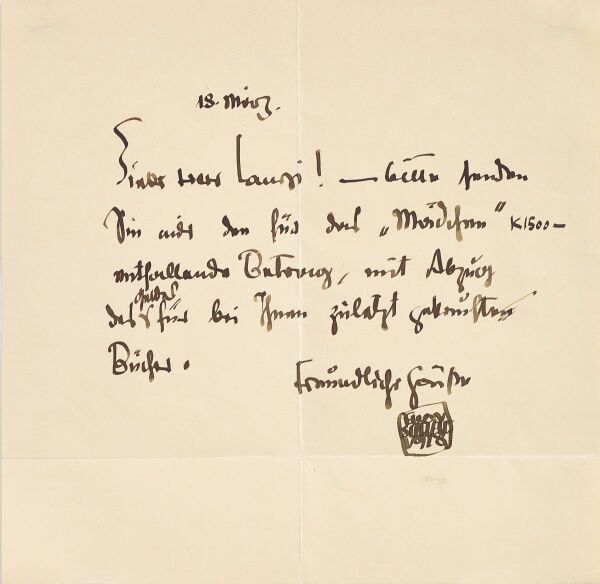 18. März.
Lieber Herr Lanyi! — bitte senden
Sie mir den für das „Mädchen“ K 1500 —
entfallende Betrag, mit Abzug
des Geldes für bei Ihnen zuletzt gekauften
Bücher.
Freundliche Grüße
EGON
SCHIELE
1918